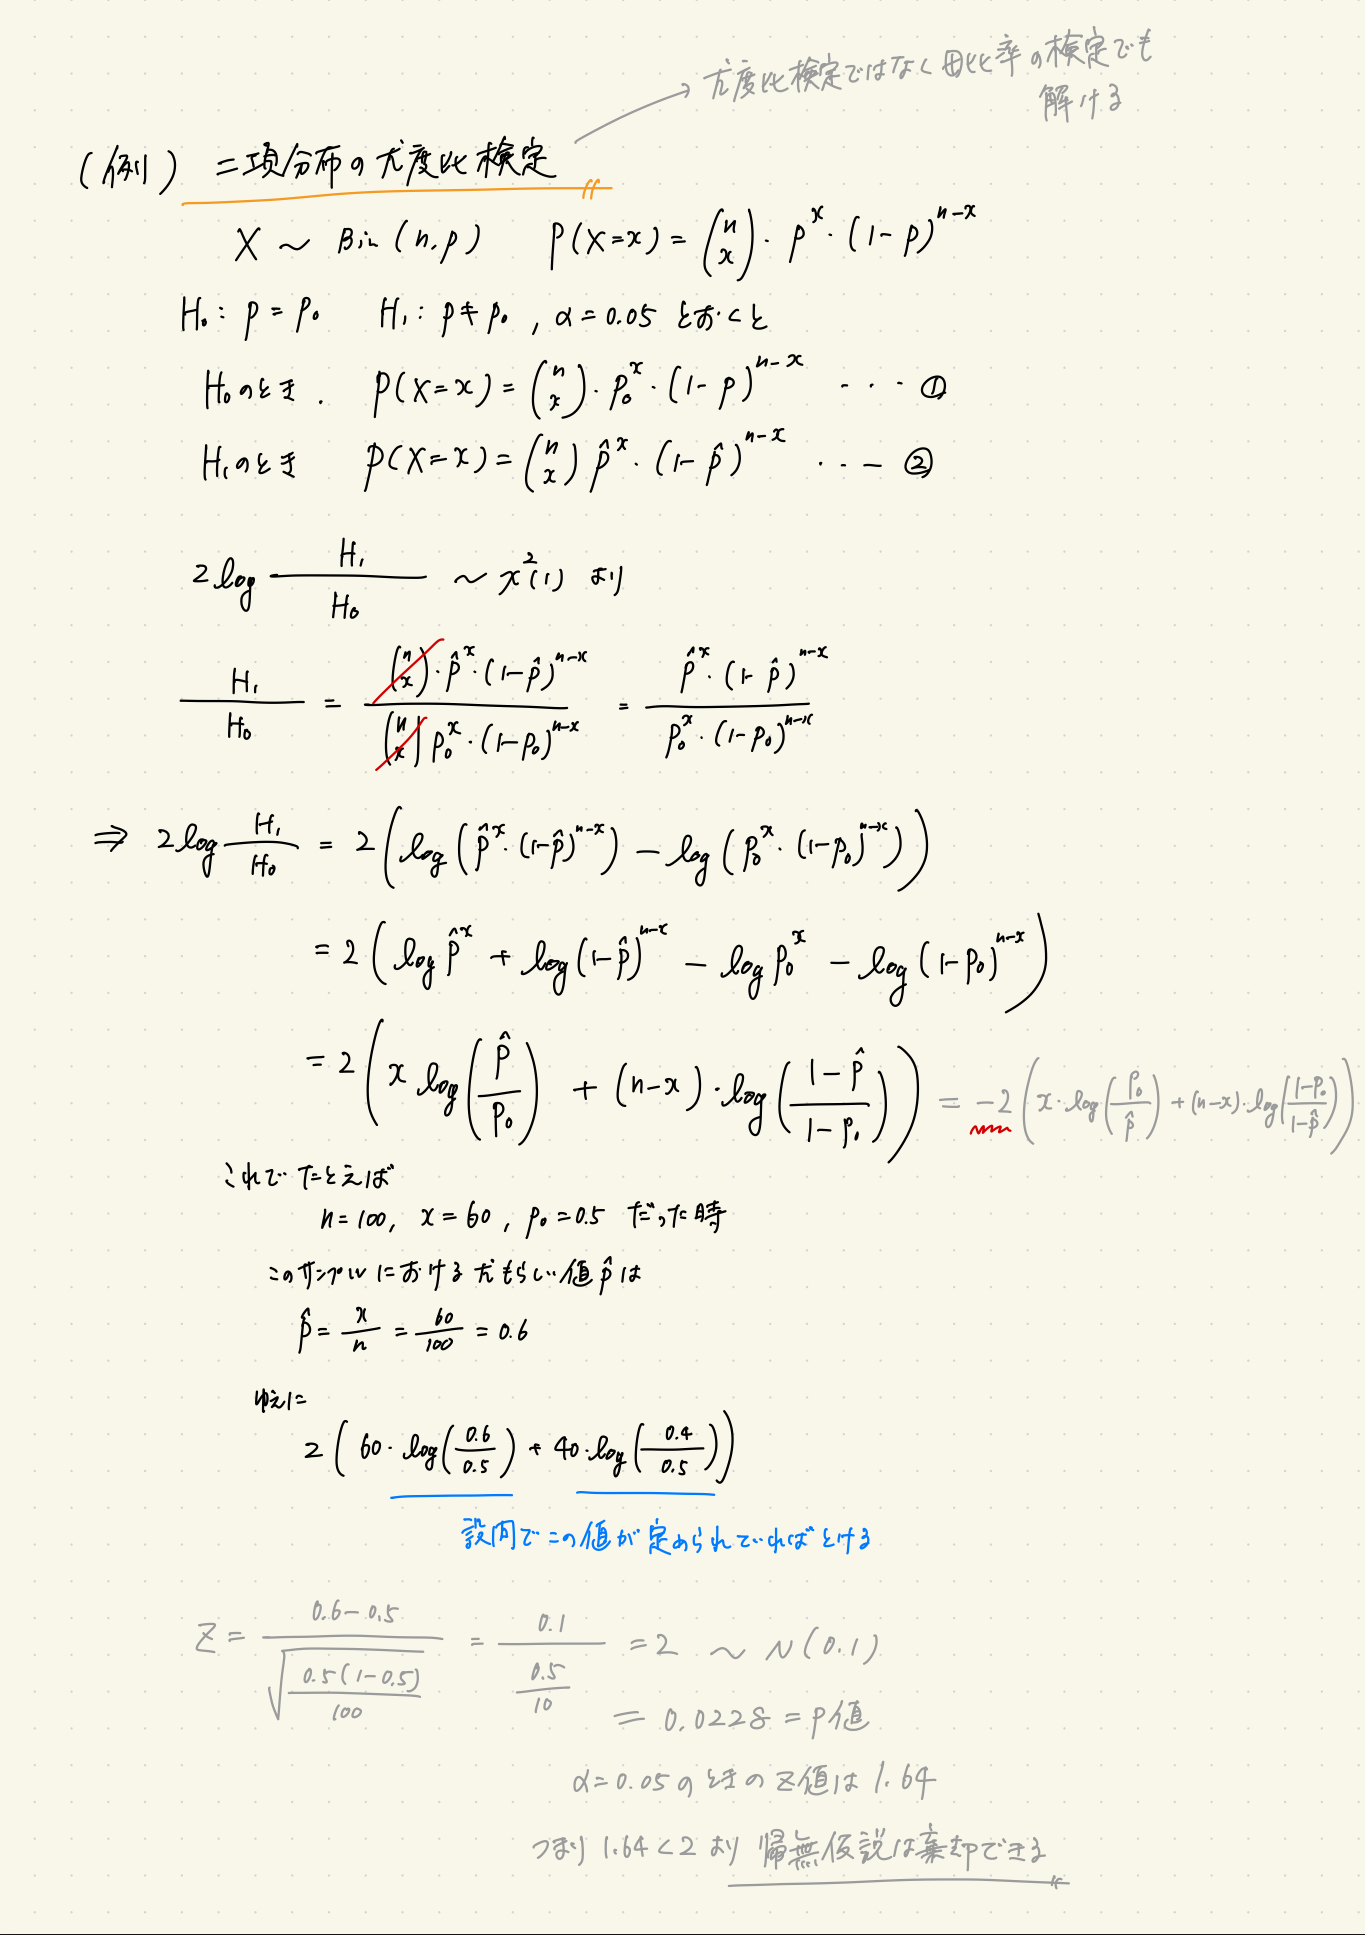 → 尤度比検定ではなく母比率の検定でも
解ける
(例) 二項分布の尤度比検定
X ~ Bin (n, p)  P(X=x) = (n x)・p^x・(1-p)^{n-x}
H₀: p = p₀  H₁: p ≠ p₀ , α = 0.05 とおくと
H₀のとき. P(X=x) = (n x)・p₀^x・(1-p)^{n-x} ・・・①
H₁のとき P(X=x) = (n x) p̂^x・(1-p̂)^{n-x} ・・・②
2log H₁/H₀ ~ χ²(1) より
H₁/H₀ = (n x)・p̂^x・(1-p̂)^{n-x} / (n x) p₀^x・(1-p₀)^{n-x} = p̂^x・(1-p̂)^{n-x} / p₀^x・(1-p₀)^{n-x}
⇒ 2log H₁/H₀ = 2(log(p̂^x・(1-p̂)^{n-x}) - log(p₀^x・(1-p₀)^{n-x}))
= 2(log p̂^x + log(1-p̂)^{n-x} - log p₀^x - log(1-p₀)^{n-x})
= 2(x log(p̂/p₀) + (n-x)・log((1-p̂)/(1-p₀))) = -2(x・log(p₀/p̂) + (n-x)・log((1-p₀)/(1-p̂)))
これで たとえば
n=100, x=60, p₀=0.5 だった時
このサンプルにおける尤もらしい値 p̂は
p̂ = x/n = 60/100 = 0.6
ゆえに
2(60・log(0.6/0.5) + 40・log(0.4/0.5))
設問でこの値が定められていればとける
Z = (0.6-0.5)/√(0.5(1-0.5)/100) = 0.1/(0.5/10) = 2 ~ N(0.1)
= 0.0228 = P値
α=0.05のときのZ値は1.64
つまり 1.64<2 より 帰無仮説は棄却できる